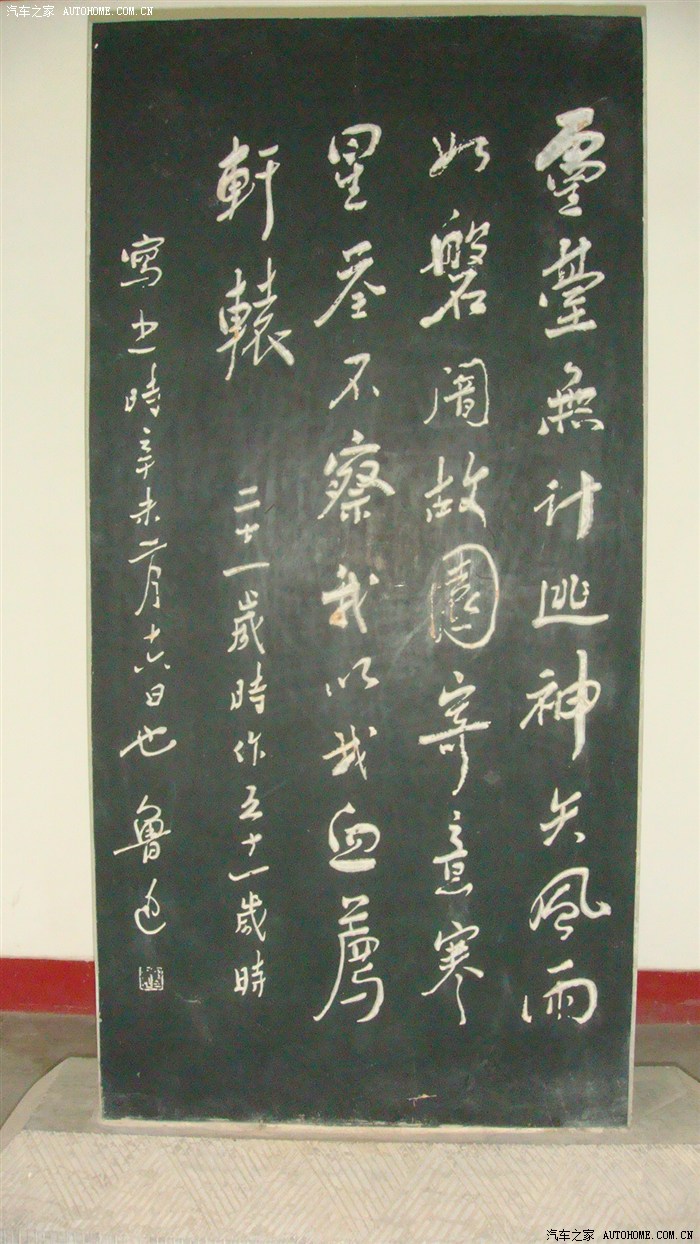 汽车之家 AUTOHOME.COM.CN
靈臺無計逃神矢風雨
如磐闇故園寄意寒
星荃不察我以我血薦
軒轅
二十一歲時作五十一歲時
寫之時辛未二月十六日也 魯迅
汽车之家 AUTOHOME.COM.CN